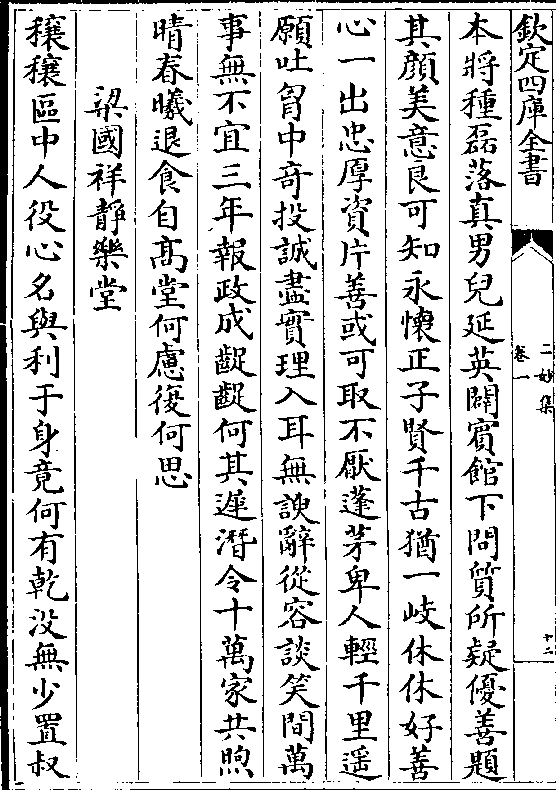 欽定四庫全書
二妙集
卷一
十二
本將種磊落真男兒延英闢賓館下問質所疑優善題
其顔美意良可知永懷正子賢千古猶一岐休休好善
心一出忠厚資片善或可取不厭蓬茅卑人輕千里遥
願吐胷中竒投誠盡實理入耳無諛辭從容談笑間萬
事無不宜三年報政成齪齪何其遲潛令十萬家共煦
晴春曦退食自髙堂何慮復何思
梁國祥靜樂堂
穰穰區中人役心名與利于身竟何有乾没無少置叔